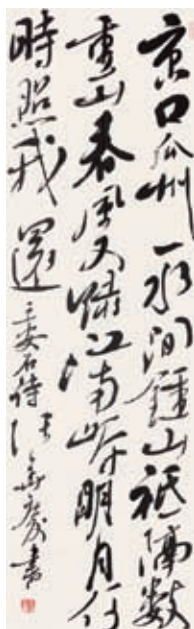 京口瓜州一水间鍾山祗隔数
重山春風又緑江南岸明月何
時照我還 王安石诗 慶書